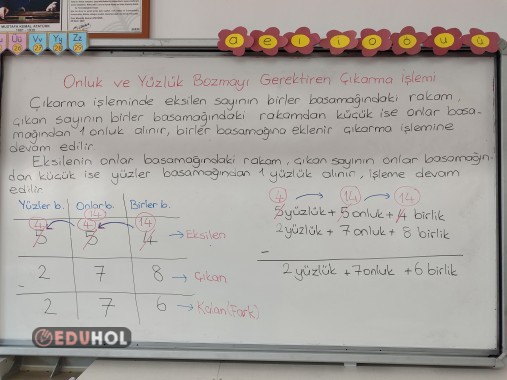 MUSTAFA KEMAL ATATÜRK
Uu Vv Yy Zz
26 27 28 29
a e ı i o ö u ü
Onluk ve Yüzlük Bozmayı Gerektiren Çıkarma işlemi
Çıkarma işleminde eksilen sayının birler basamağındaki rakam,
çıkan sayının birler basamağındaki rakamdan küçük ise onlar basa-
mağından 1 onluk alınır, birler basamağına eklenir çıkarma işlemine
devam edilir.
Eksilenin onlar basamağındaki rakam, çıkan sayının onlar basamağın-
dan küçük ise yüzler basamağından 1 yüzlük alınır, işleme devam
edilir
Yüzler b. Onlar b. Birler b.
14
4 4 14
5 5 4 → Eksilen
2 7 8 → Çıkan
-
2 7 6 → Kalan(Fark)
4 14 14
5 yüzlük + 5 onluk + 4 birlik
2 yüzlük + 7 onluk + 8 birlik
-
2 yüzlük + 7 onluk + 6 birlik
EDUHOL